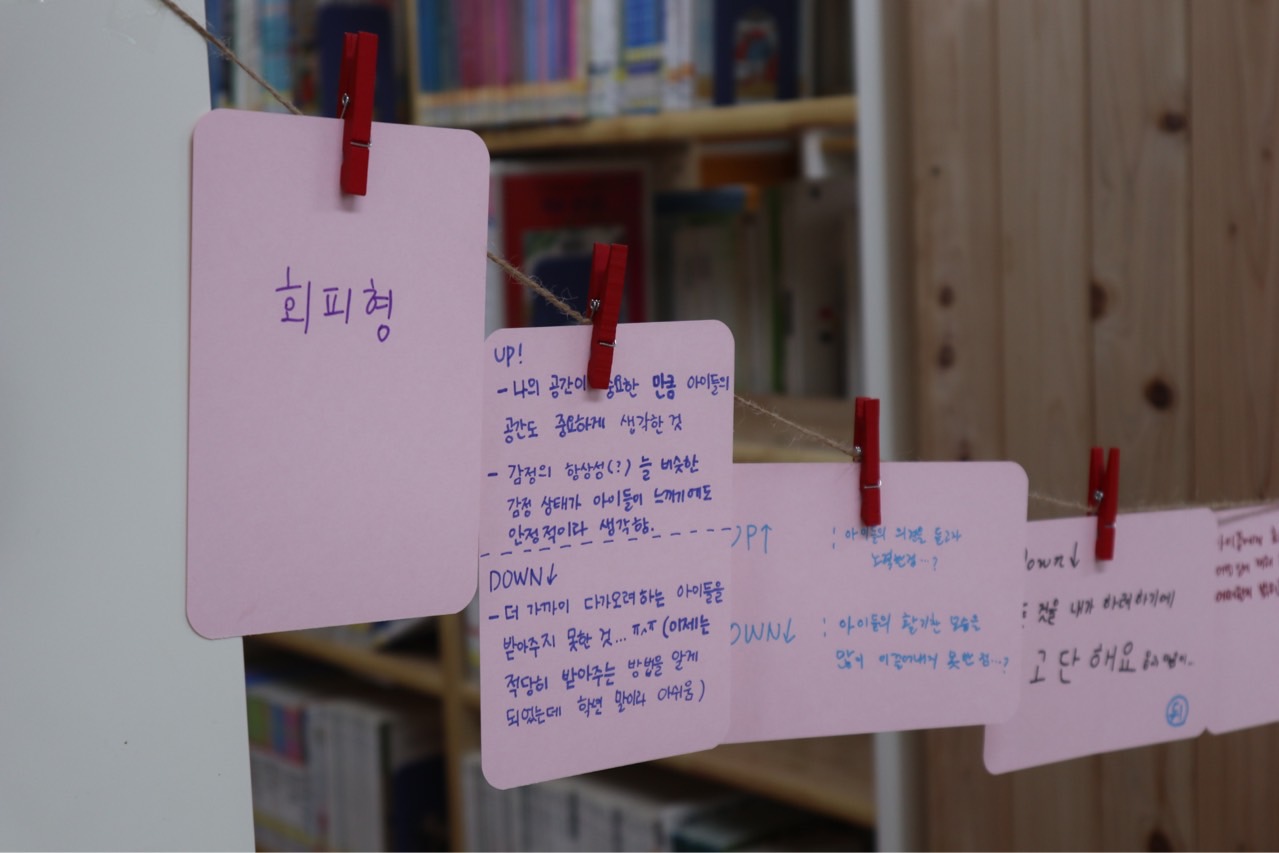 회피형
UP!
- 나의 공간이 중요한 만큼 아이들의
공간도 중요하게 생각한 것
- 감정의 항상성(?) 늘 비슷한
감정 상태가 아이들이 느끼기에도
안정적이라 생각함.
DOWN↓
- 더 가까이 다가오려하는 아이들을
받아주지 못한 것... ㅠㅅㅠ (이제는
적당히 받아주는 방법을 알게
되었는데 학년 말이라 아쉬움)
UP↑ : 아이들의 의견을 듣고자
노력한 점...?
DOWN↓ : 아이들의 활기찬 모습을
많이 이끌어내지 못한 점...?
Down↓
것을 내가 하려하기에
고단해요